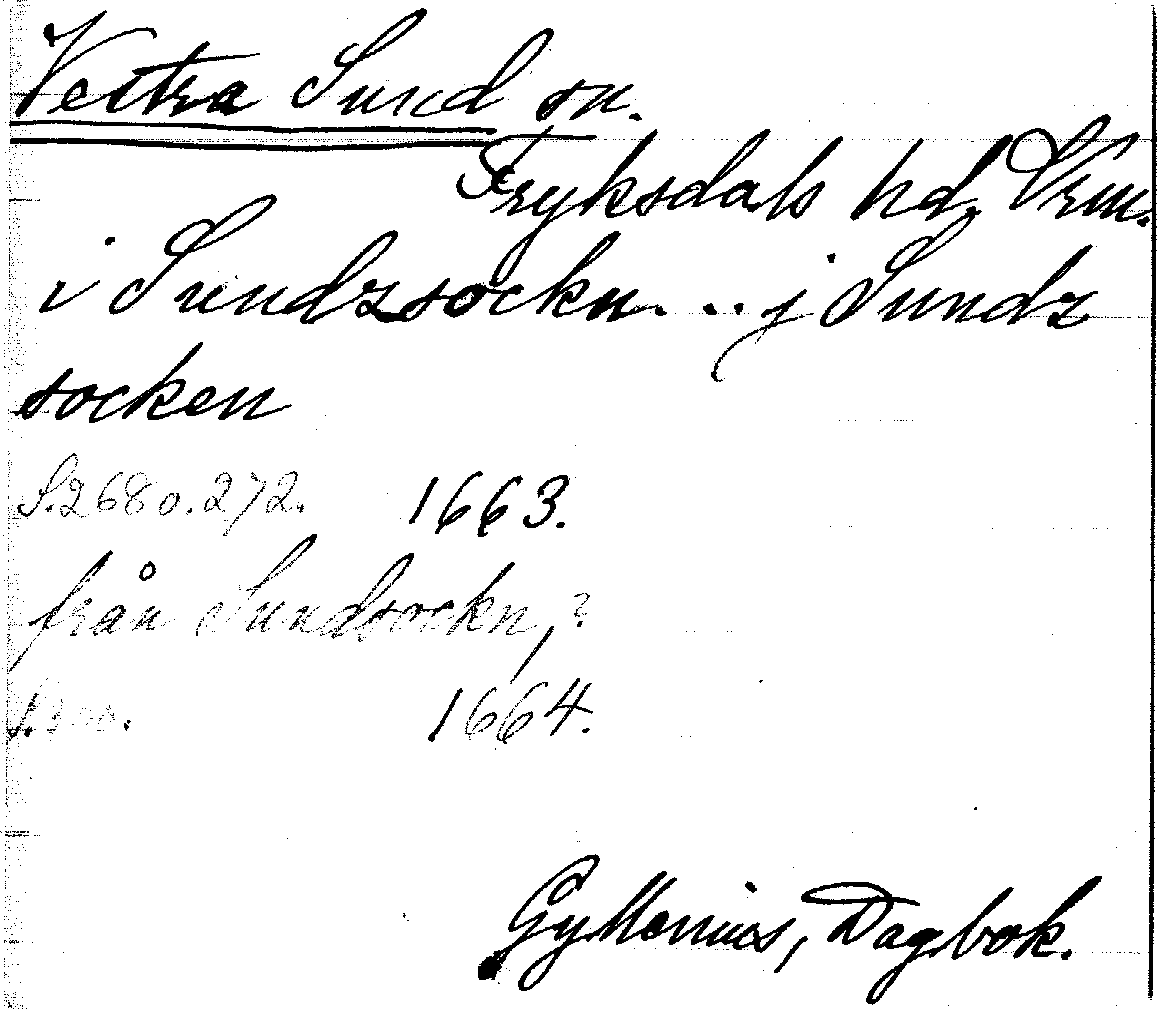 Vestra Sund sn.
Fryksdals hd, Vrm.
i Sundzsockn. .. j Sundz
socken
S. 268 o. 272. 1663.
från Sundsockn, ?
S. 1664.
Gyllenius, Dagbok.